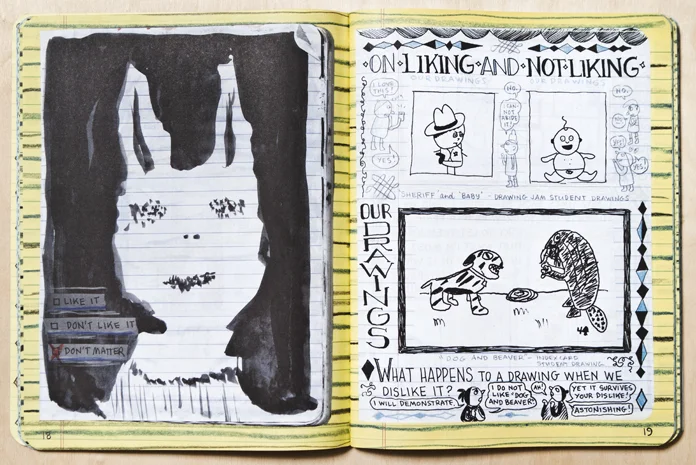 LIKE IT
DON'T LIKE IT
DON'T MATTER
18
ON LIKING AND NOT LIKING
OUR DRAWINGS
I LOVE THIS!
YES!
NO.
I CAN NOT ABIDE IT!
NO.
"SHERIFF" and "BABY" - DRAWING JAM STUDENT DRAWINGS
OUR DRAWINGS
"DOG AND BEAVER" - INDEX CARD
STUDENT DRAWING
WHAT HAPPENS TO A DRAWING WHEN WE
DISLIKE IT?
I WILL DEMONSTRATE.
I DO NOT
LIKE "DOG
AND BEAVER"
AH!
YET IT SURVIVES
YOUR DISLIKE!
ASTONISHING!
19